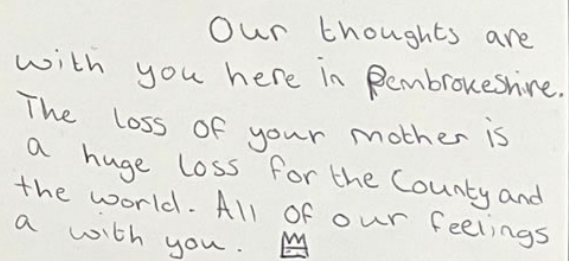 Our thoughts are
with you here in Pembrokeshire.
The loss of your mother is
a huge loss for the County and
the world. All of our feelings
a with you.